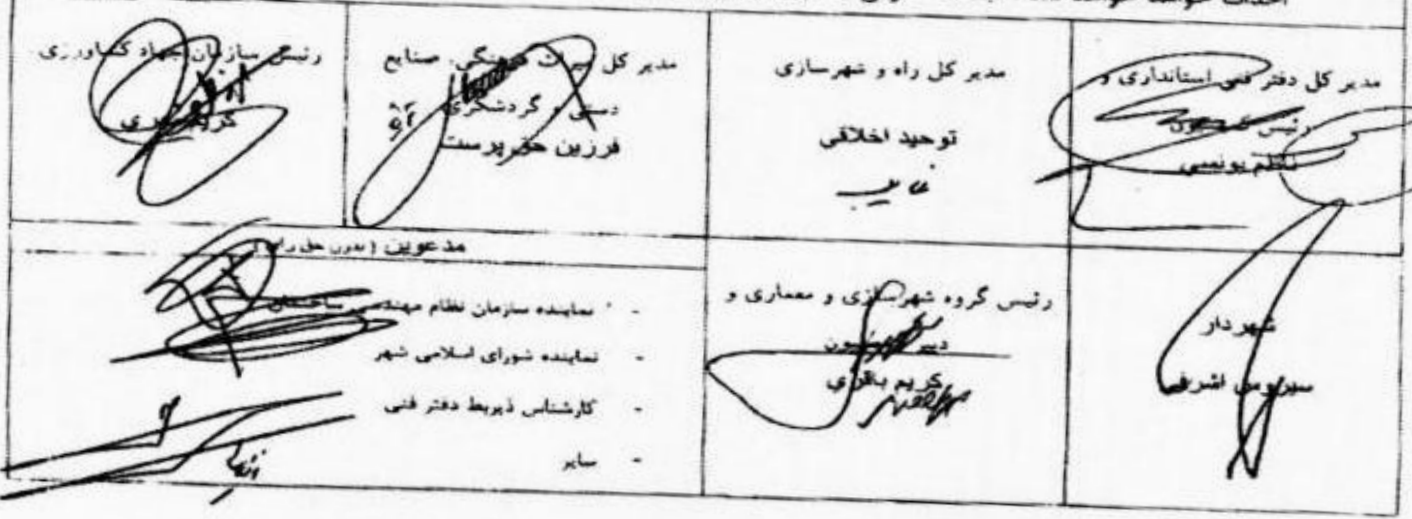 احداث
مدیر کل دفتر فنی استانداری و
رئیس کمیسیون
ناظم یونسی
مدیر کل راه و شهرسازی
توحید اخلاقی
غایب
مدیر کل میراث فرهنگی، صنایع
دستی و گردشگری
فرزین حق پرست
رئیس سازمان جهاد کشاورزی
شهردار
اشرفی
رئیس گروه شهرسازی و معماری و
دبیر کمیسیون
کریم باقری
مدعوین (بدون حق رای)
- نماینده سازمان نظام مهندسی ساختمان
- نماینده شورای اسلامی شهر
- کارشناس ذیربط دفتر فنی
- سایر